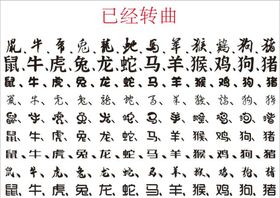 已经转曲
鼠 牛 虎 兔 龙 蛇 马 羊 猴 鸡 狗 猪
鼠 牛 虎 兔 龙 蛇 马 羊 猴 鸡 狗 猪
鼠 牛 虎 兔 龙 蛇 马 羊 猴 鸡 狗 猪
鼠 牛 虎 兔 龙 蛇 马 羊 猴 鸡 狗 猪
鼠 牛 虎 兔 龙 蛇 马 羊 猴 鸡 狗 猪
鼠 牛 虎 兔 龙 蛇 马 羊 猴 鸡 狗 猪
鼠 牛 虎 兔 龙 蛇 马 羊 猴 鸡 狗 猪
鼠 牛 虎 兔 龙 蛇 马 羊 猴 鸡 狗 猪